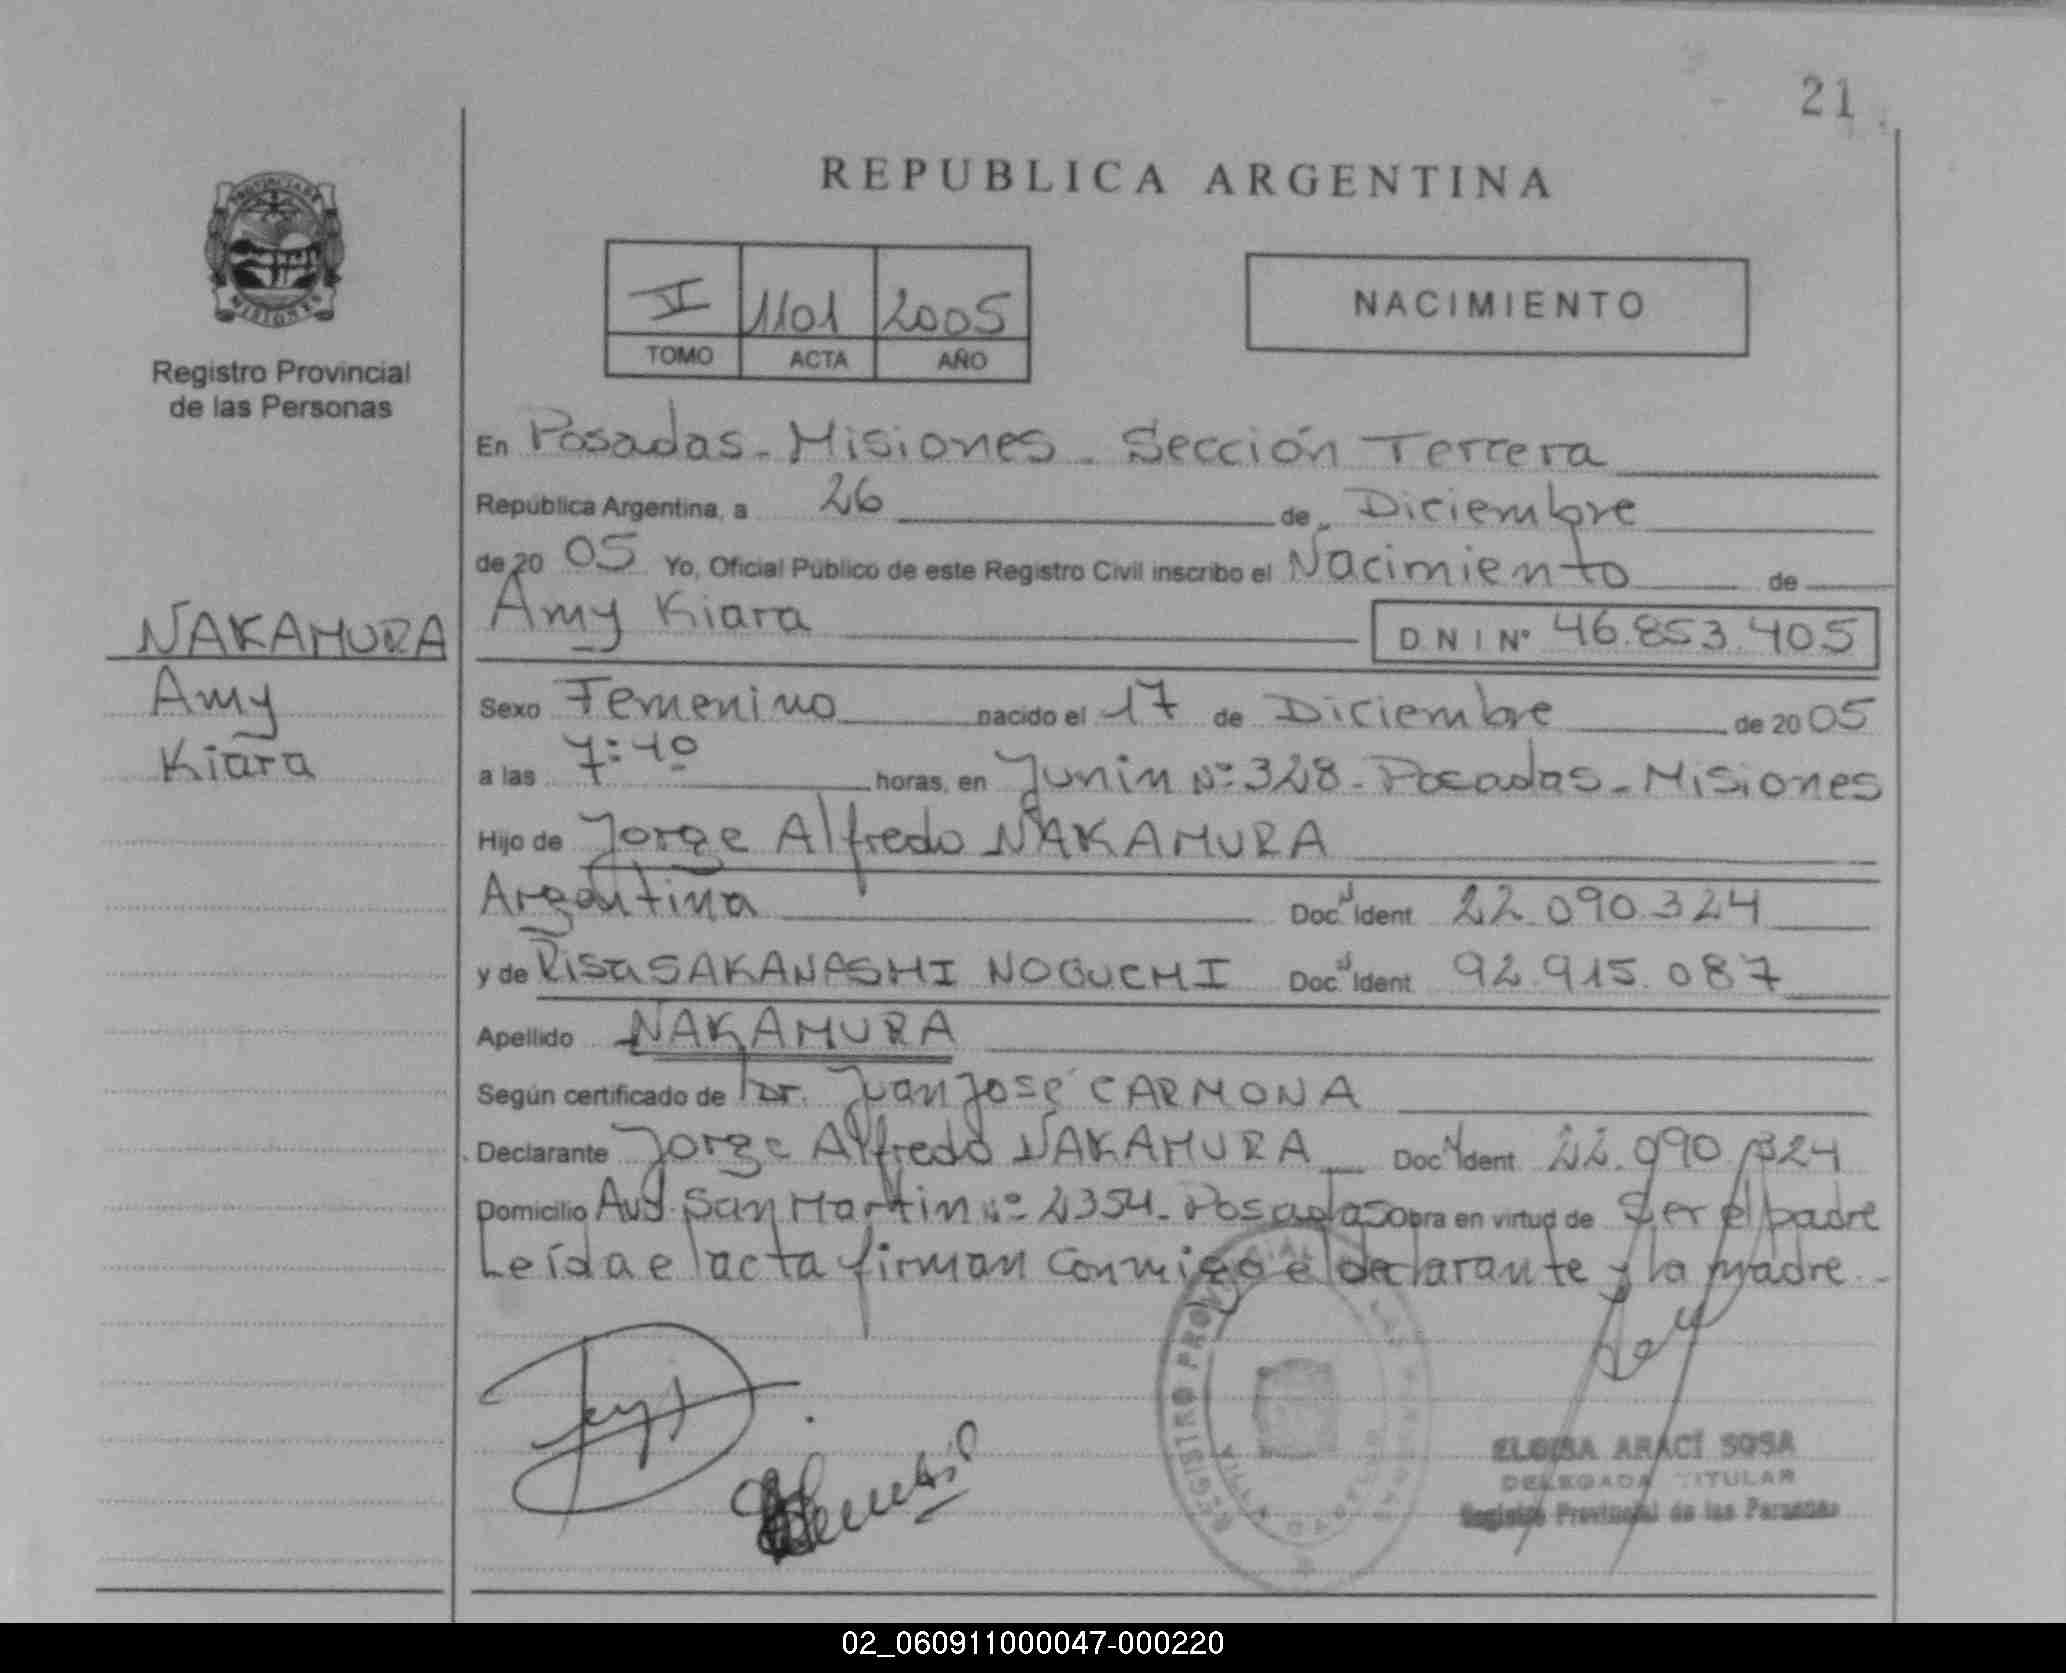 21
REPUBLICA ARGENTINA
PROVINCIA DE
MISIONES
Registro Provincial
de las Personas
1101 2005
TOMO ACTA AÑO
NACIMIENTO
En Posadas - Misiones - Sección Tercera
República Argentina, a 26 de Diciembre
de 20 05 Yo, Oficial Público de este Registro Civil inscribo el Nacimiento de
Amy Kiara D N I Nº 46.853.405
NAKAMURA
Amy
Kiara
Sexo Femenino nacido el 17 de Diciembre de 20 05
a las 7:40 horas, en Junin Nº 328 - Posadas - Misiones
Hijo de Jorge Alfredo NAKAMURA
Argentina Doc. Ident 22.090.324
y de Risa SAKANASHI NOGUCHI Doc. Ident 92.915.087
Apellido NAKAMURA
Según certificado de Dr. Juan José CARMONA
Declarante Jorge Alfredo NAKAMURA Doc. Ident 22.090.324
Domicilio Avd. San Martin Nº 2354 - Posadas Obra en virtud de Ser el padre
Leída el acta firman conmigo el declarante y la madre.-
REGISTRO PROVINCIAL DE LAS PERSONAS
VILLA
ELOISA ARACÍ SOSA
DELEGADA TITULAR
Registro Provincial de las Personas
02_060911000047-000220